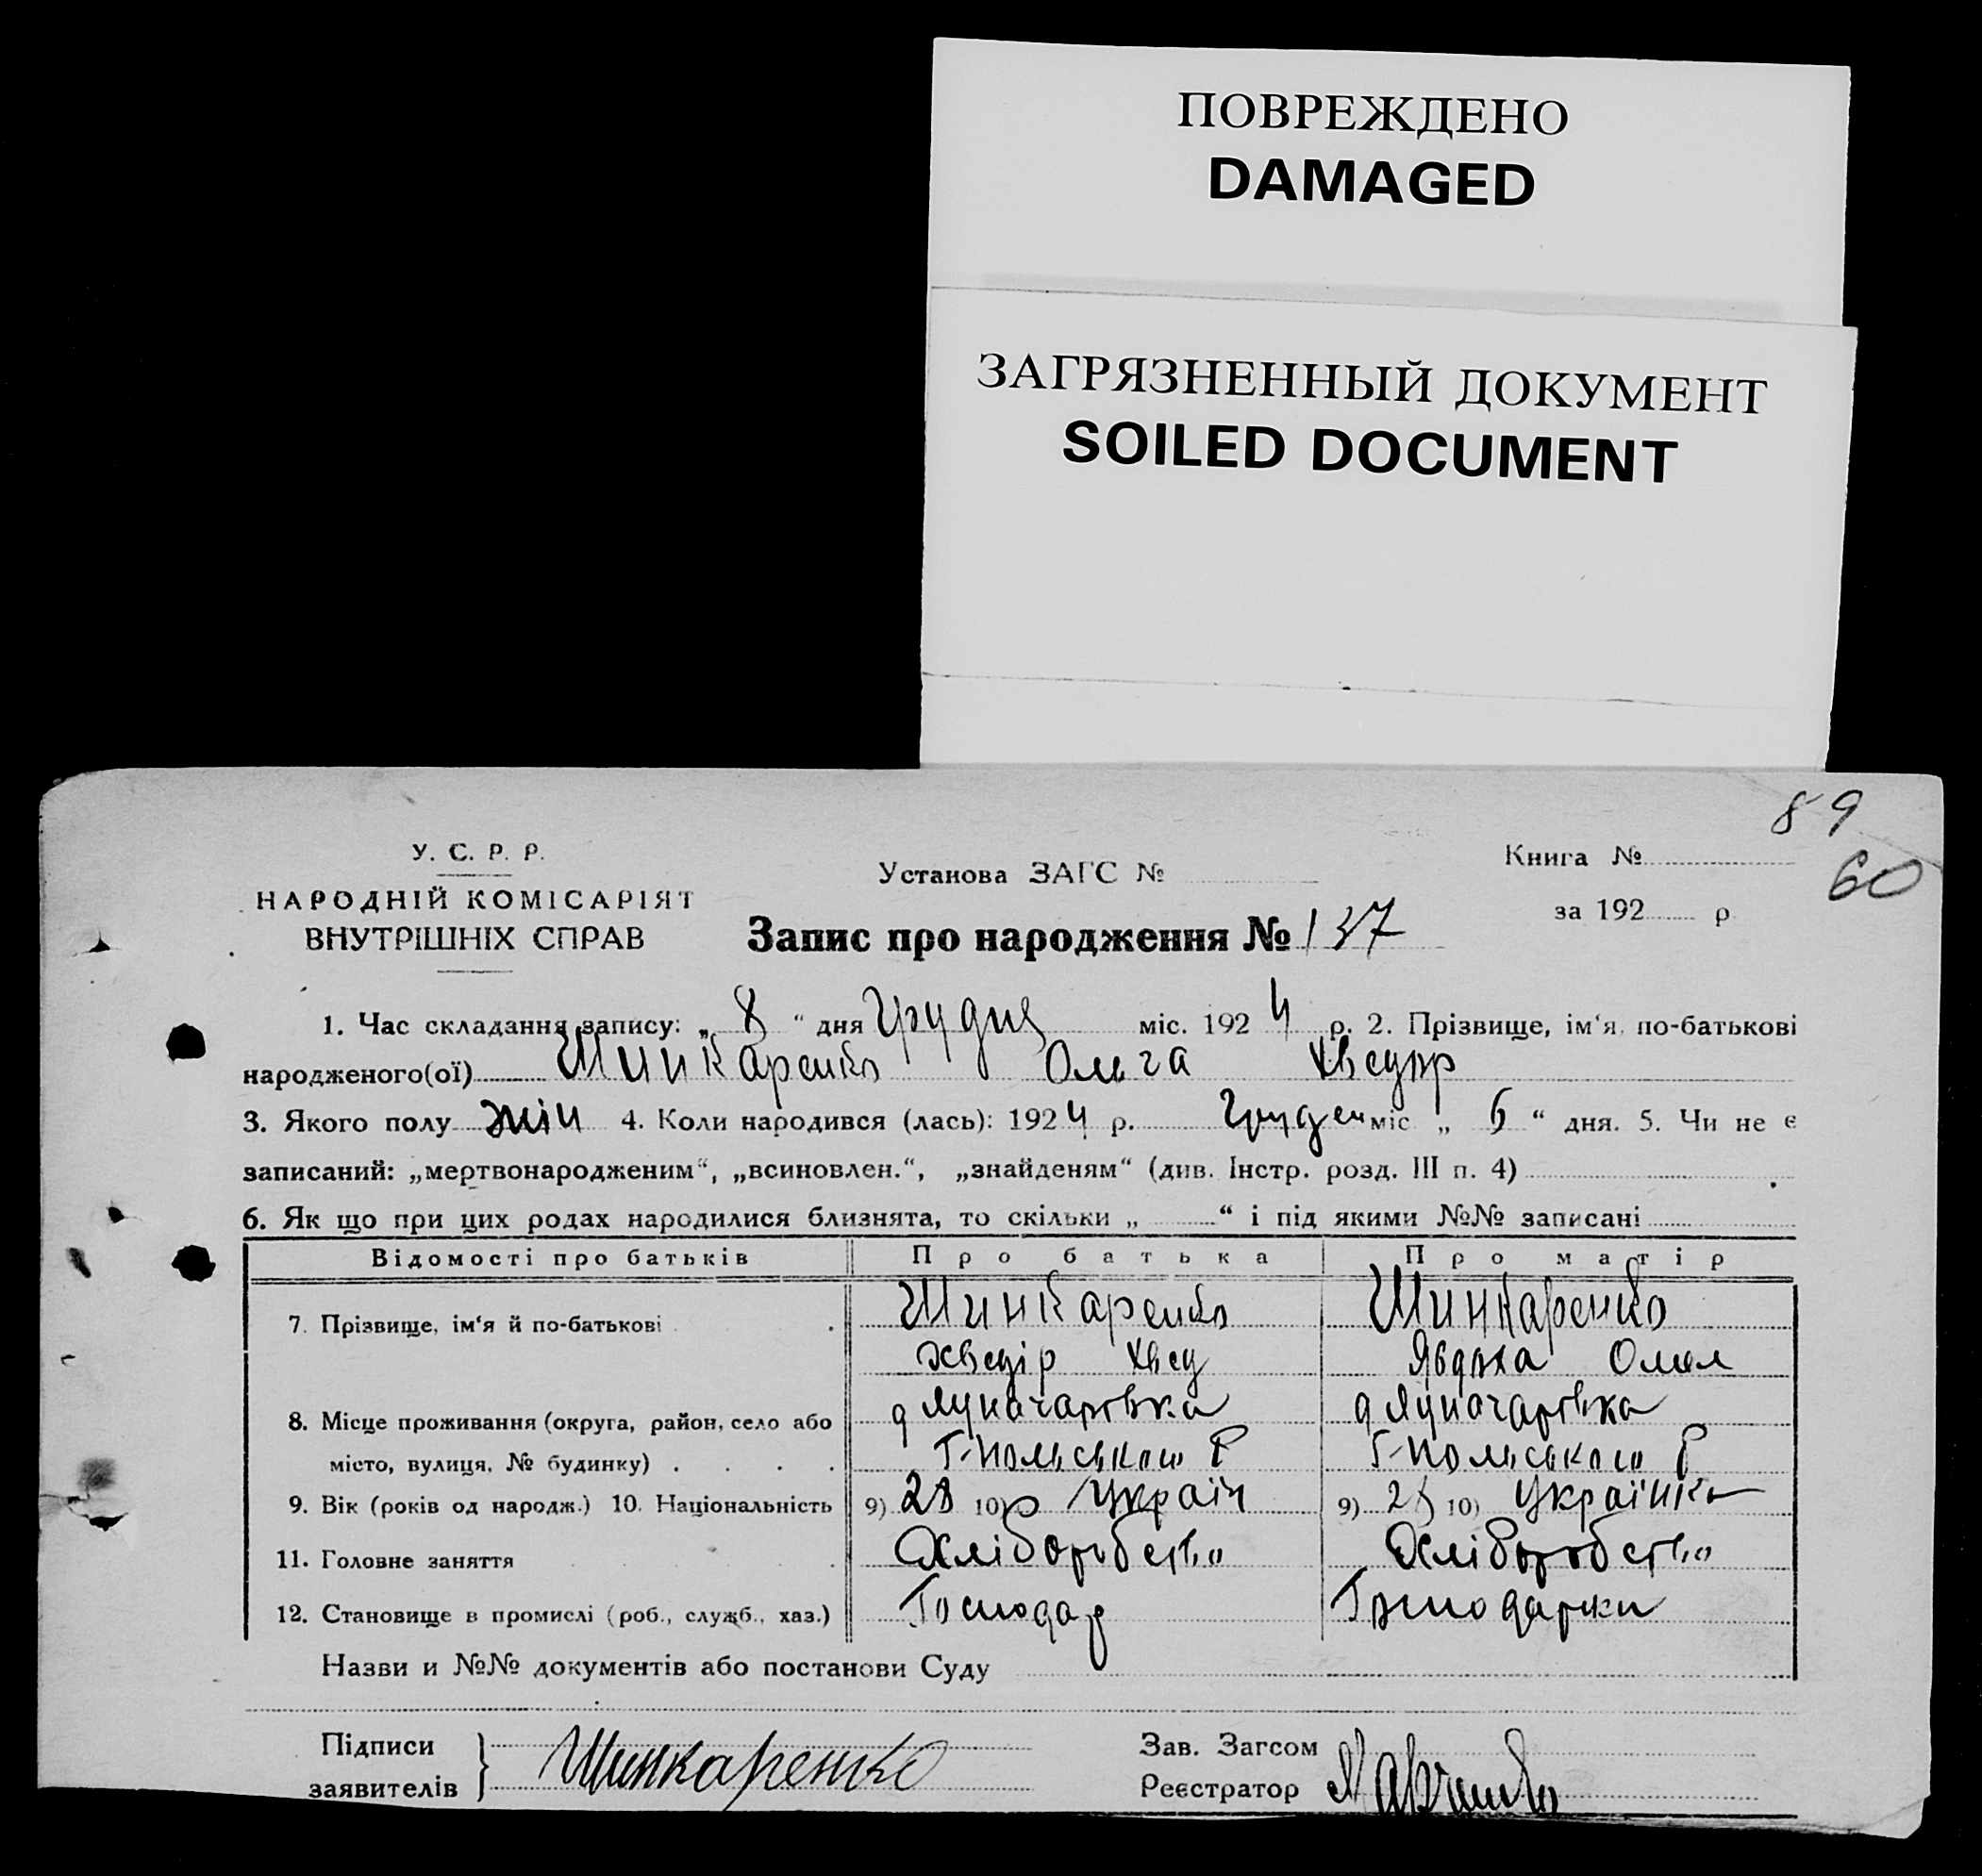 ПОВРЕЖДЕНО
DAMAGED
ЗАГРЯЗНЕННЫЙ ДОКУМЕНТ
SOILED DOCUMENT
89
60
У. С. Р. Р.
НАРОДНІЙ КОМІСАРІЯТ
ВНУТРІШНІХ СПРАВ
Установа ЗАГС №
Запис про народження № 137
Книга №
за 192 р
1. Час складання запису: „ 8 “ дня Грудня міс. 1924 р. 2. Прізвище, ім‘я, по-батькові
народженого(ої) Шинкаренко Ольга Хведор
3. Якого полу жін 4. Коли народився (лась): 1924 р. Грудень міс „ 6 “ дня. 5. Чи не є
записаний: „мертвонародженим“, „всиновлен.“, „знайденям“ (див. Інстр. розд. III п. 4)
6. Як що при цих родах народилися близнята, то скільки „ “ і під якими №№ записані
Відомості про батьків Про батька Про матір
7. Прізвище, ім‘я й по-батькові Шинкаренко Шинкаренко
Хведір Хвед Явдоха Омел
8. Місце проживання (округа, район, село або д Луначаровка д Луначаровка
місто, вулиця, № будинку) Г-Польського Р Г-Польського Р
9. Вік (років од народж.) 10. Національність 9) 28 10) Україн 9) 28 10) Українка
11. Головне заняття Хліборобство Хліборобство
12. Становище в промислі (роб., служб., хаз.) Господар Господарки
Назви и №№ документів або постанови Суду
Підписи
заявителів Шинкаренко
Зав. Загсом
Реєстратор